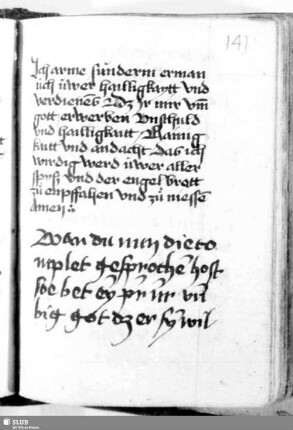 141
Ich arme sündernn erman
üch üwer hailligkaytt vnd
verdienens Adz Ir mir vm̄
gott erwerben Vnschuld
vnd hailligkaitt Rainig
kaitt vnd andacht das ich
wirdig werd üwer aller
spys vnd der engel brott
zü enpffahen vnd zü niessē
Amen
Wan du nun die co
mplet gesprochē host
so bet ey pr̄ nr̄ vn̄
big got dz er sy wil
SLUB